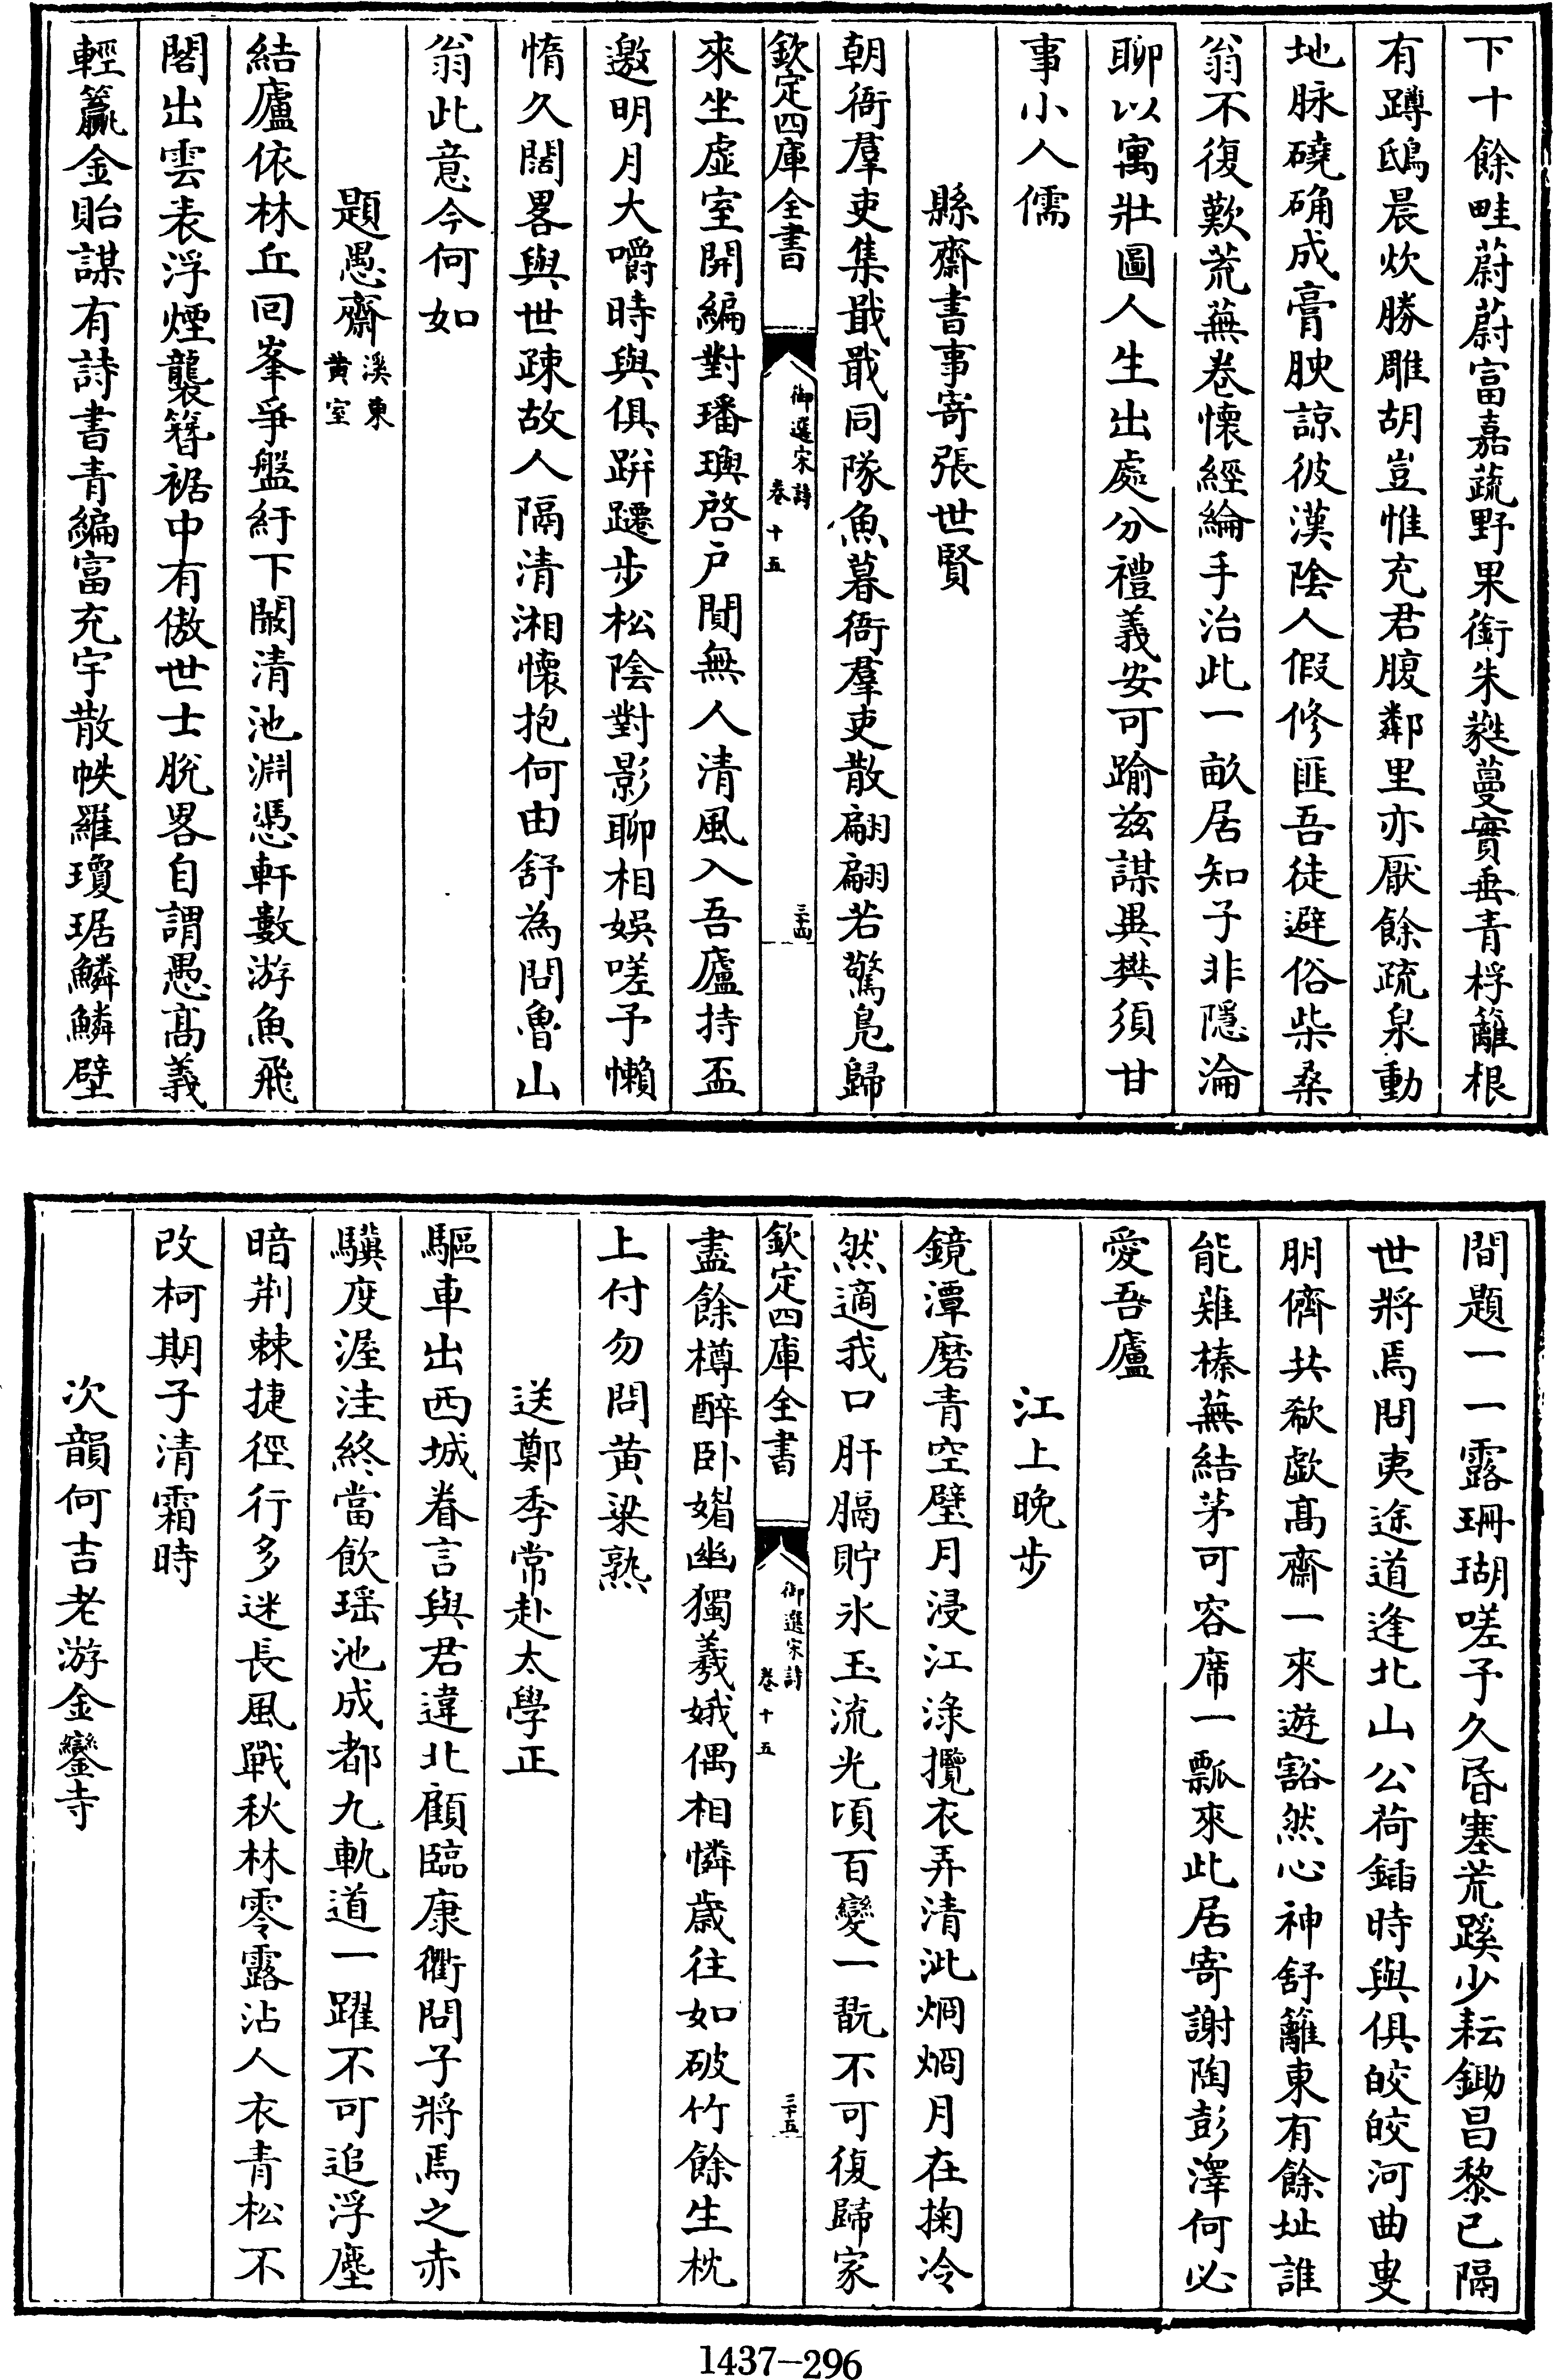 下十餘畦蔚蔚富嘉蔬野果銜朱蕤蔓實垂青桴籬根
有蹲鴟晨炊勝雕胡豈惟充君腹鄰里亦厭餘疏泉動
地脉磽确成膏腴諒彼漢陰人假修匪吾徒避俗柴桑
翁不復歎荒蕪卷懷經綸手治此一畝居知子非隱淪
聊以寓壯圖人生出處分禮義安可踰兹謀異樊須甘
事小人儒
縣齋書事寄張世賢
朝衙羣吏集戢戢同隊魚暮衙羣吏散翩翩若驚鳬歸
欽定四庫全書
御選宋詩
卷十五
三十四
來坐虚室開編對璠璵啓户閴無人清風入吾廬持盃
邀明月大嚼時與俱跰𨇤步松陰對影聊相娱嗟予懶
惰久闊畧與世疎故人隔清湘懷抱何由舒為問魯山
翁此意今何如
題愚齋
溪東
黄室
結廬依林丘回峯爭盤紆下闞清池淵憑軒數游魚飛
閣出雲表浮煙襲簪裾中有傲世士脱畧自謂愚高義
輕籯金貽謀有詩書青編富充宇散帙羅瓊琚鱗鱗壁
間題一一露珊瑚嗟子久昏塞荒蹊少耘鋤昌黎已隔
世將焉問夷途道逢北山公荷鍤時與俱皎皎河曲叟
朋儕共欷歔高齋一來遊豁然心神舒籬東有餘址誰
能薙榛蕪結茅可容席一瓢來此居寄謝陶彭澤何必
愛吾廬
江上晚步
鏡潭磨青空璧月浸江淥攬衣弄清泚烱烱月在掬冷
然適我口肝膈貯氷玉流光頃百變一翫不可復歸家
欽定四庫全書
御選宋詩
卷十五
三十五
盡餘樽醉卧媚幽獨羲娥偶相憐歲往如破竹餘生枕
上付勿問黄粱熟
送鄭季常赴太學正
驅車出西城眷言與君違北顧臨康衢問子將焉之赤
驥度渥洼終當飲瑶池成都九軌道一躍不可追浮塵
暗荆棘捷徑行多迷長風戰秋林零露沾人衣青松不
改柯期子清霜時
次韻何吉老游金鑾寺
1437-296